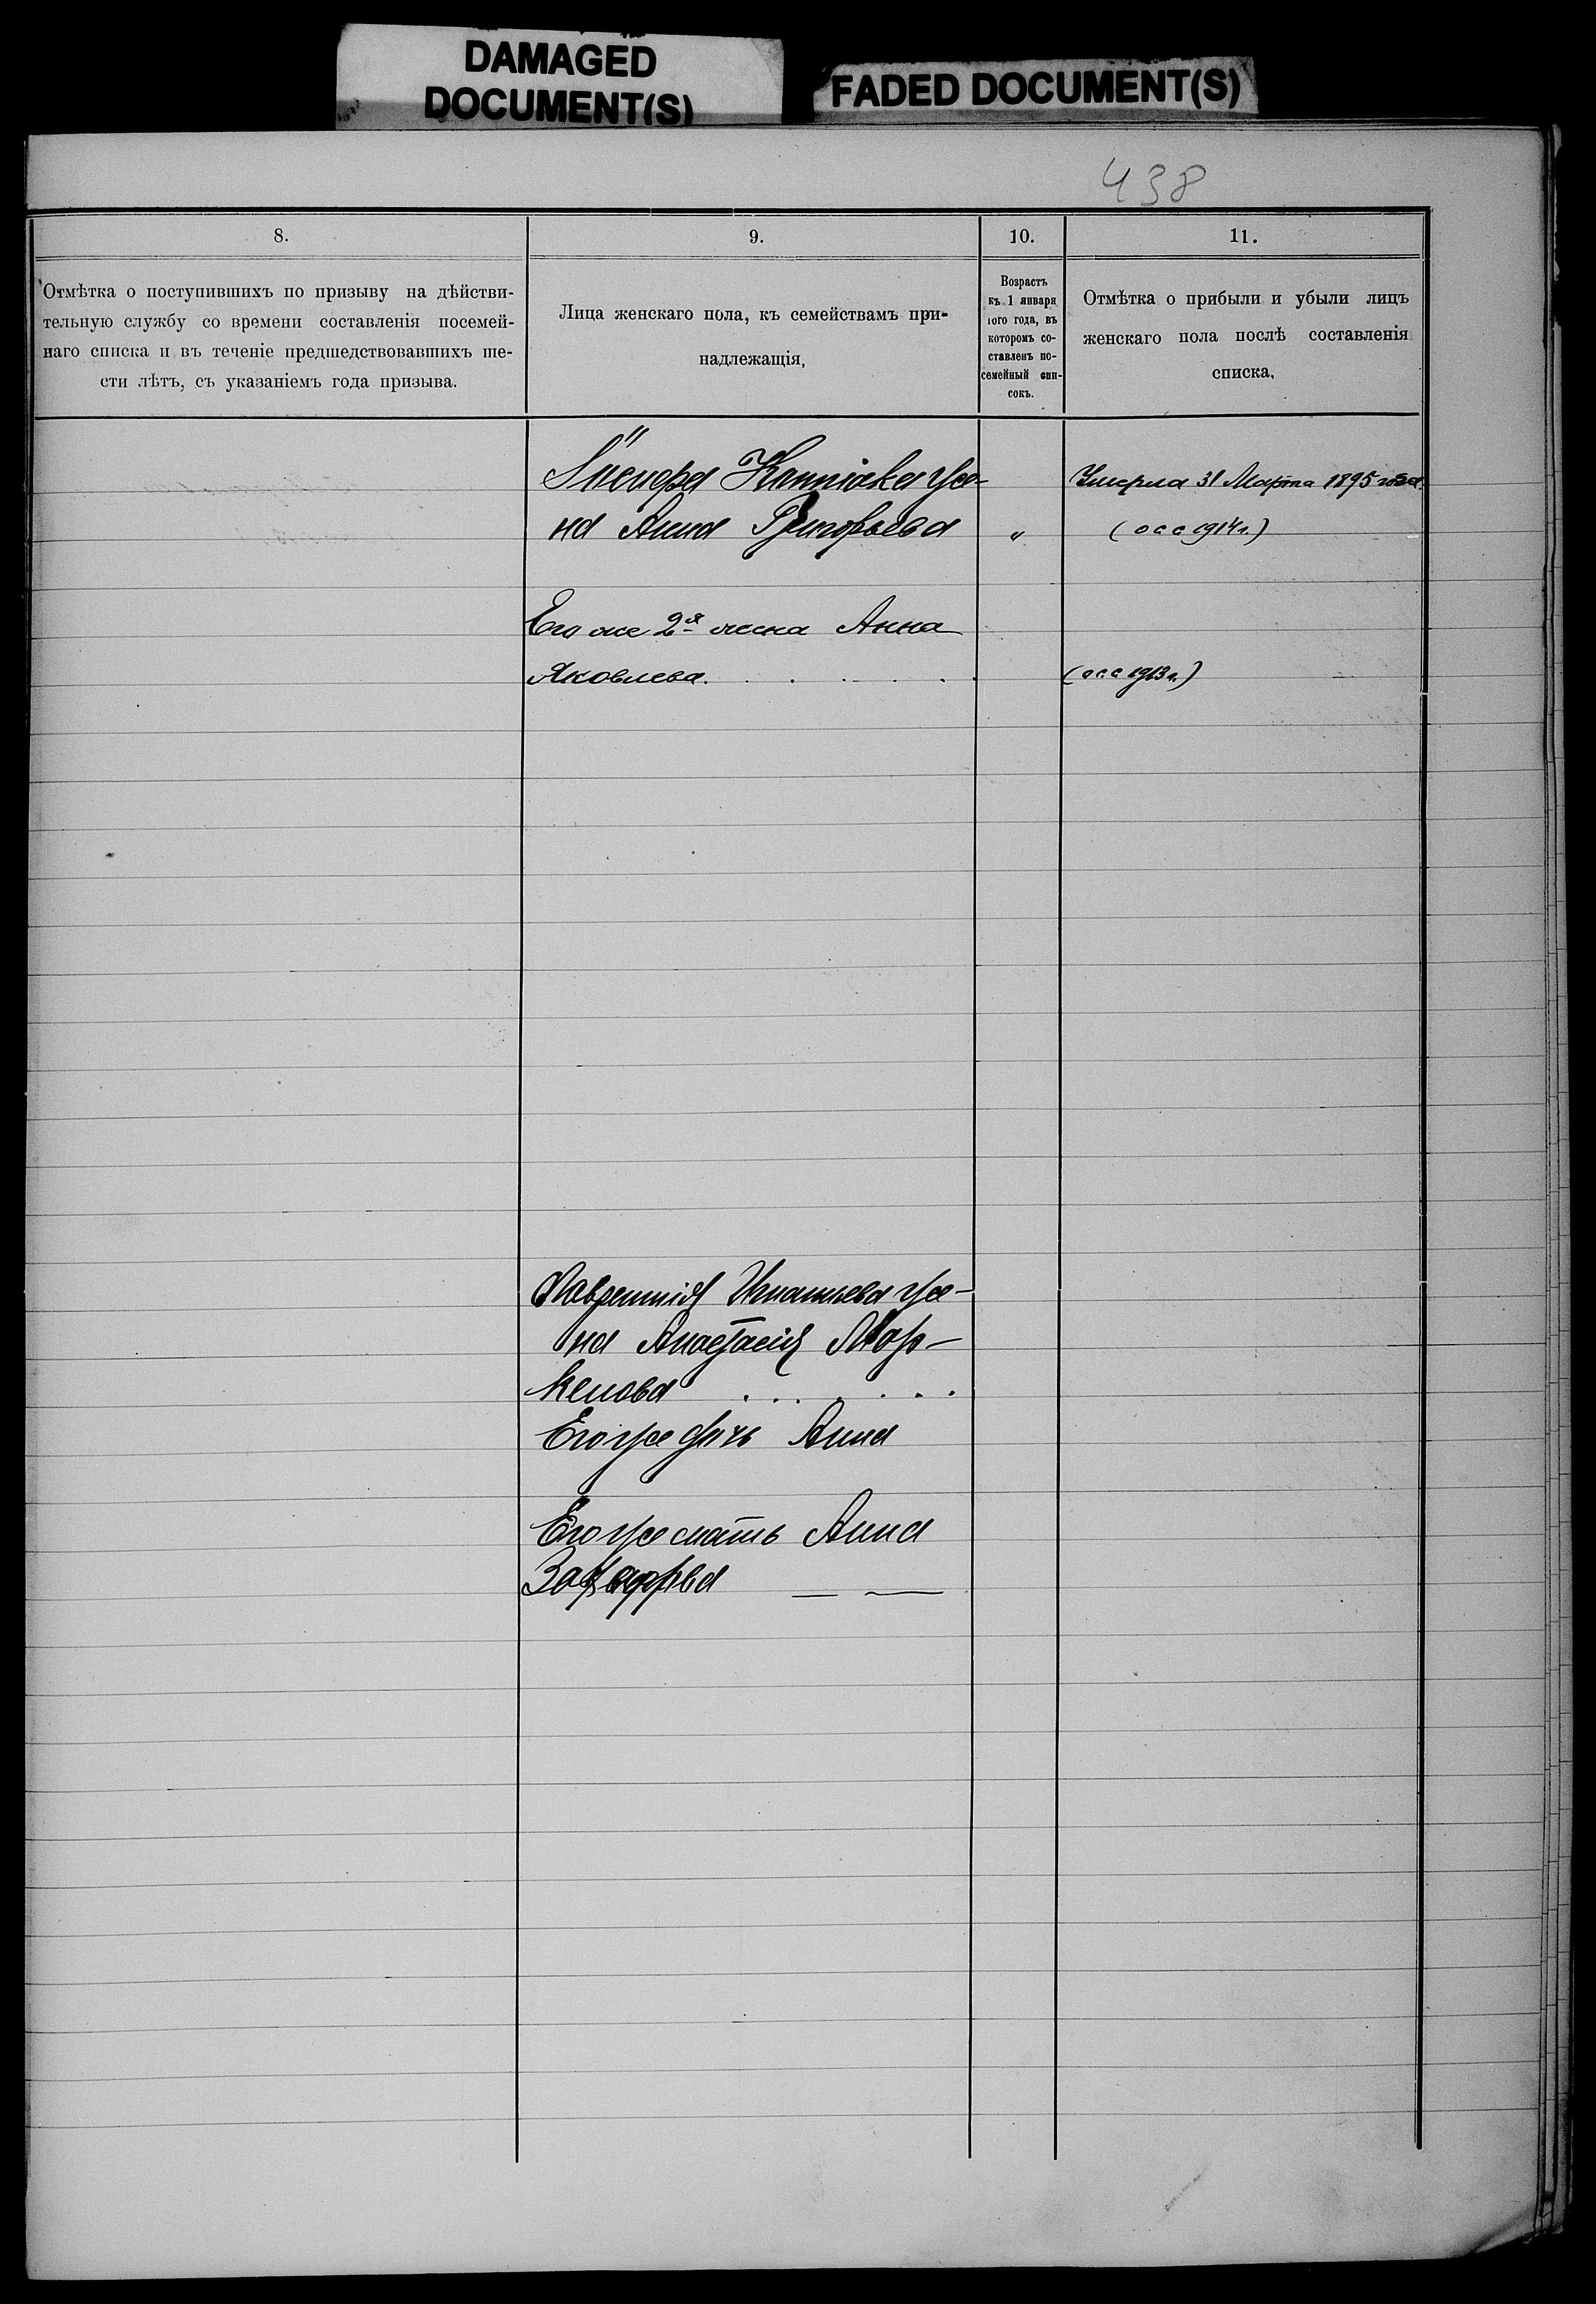 DAMAGED
DOCUMENT(S)
FADED DOCUMENT(S)
438
8.
9.
10.
11.
Отмѣтка о поступившихъ по призыву на дѣйстви-
тельную службу со времени составленія посемей-
наго списка и въ теченіе предшедствовавшихъ ше-
сти лѣтъ, съ указаніемъ года призыва.
Лица женскаго пола, къ семействамъ при-
надлежащія,
Возрастъ
къ 1 января
того года, въ
которомъ со-
ставленъ по-
семейный спи-
сокъ.
Отмѣтка о прибыли и убыли лицъ
женскаго пола послѣ составленія
списка.
же-
на Анна Григорьева "
Умерла 31 Марта 1895 года.
(осс 1914 г.)
Его же 2я жена Анна
Яковлева.
(осс 1913 г.)
Лаврентія Игнатьева же-
на Анастасія Мар-
келова
Его же дочь Анна
Его же мать Анна